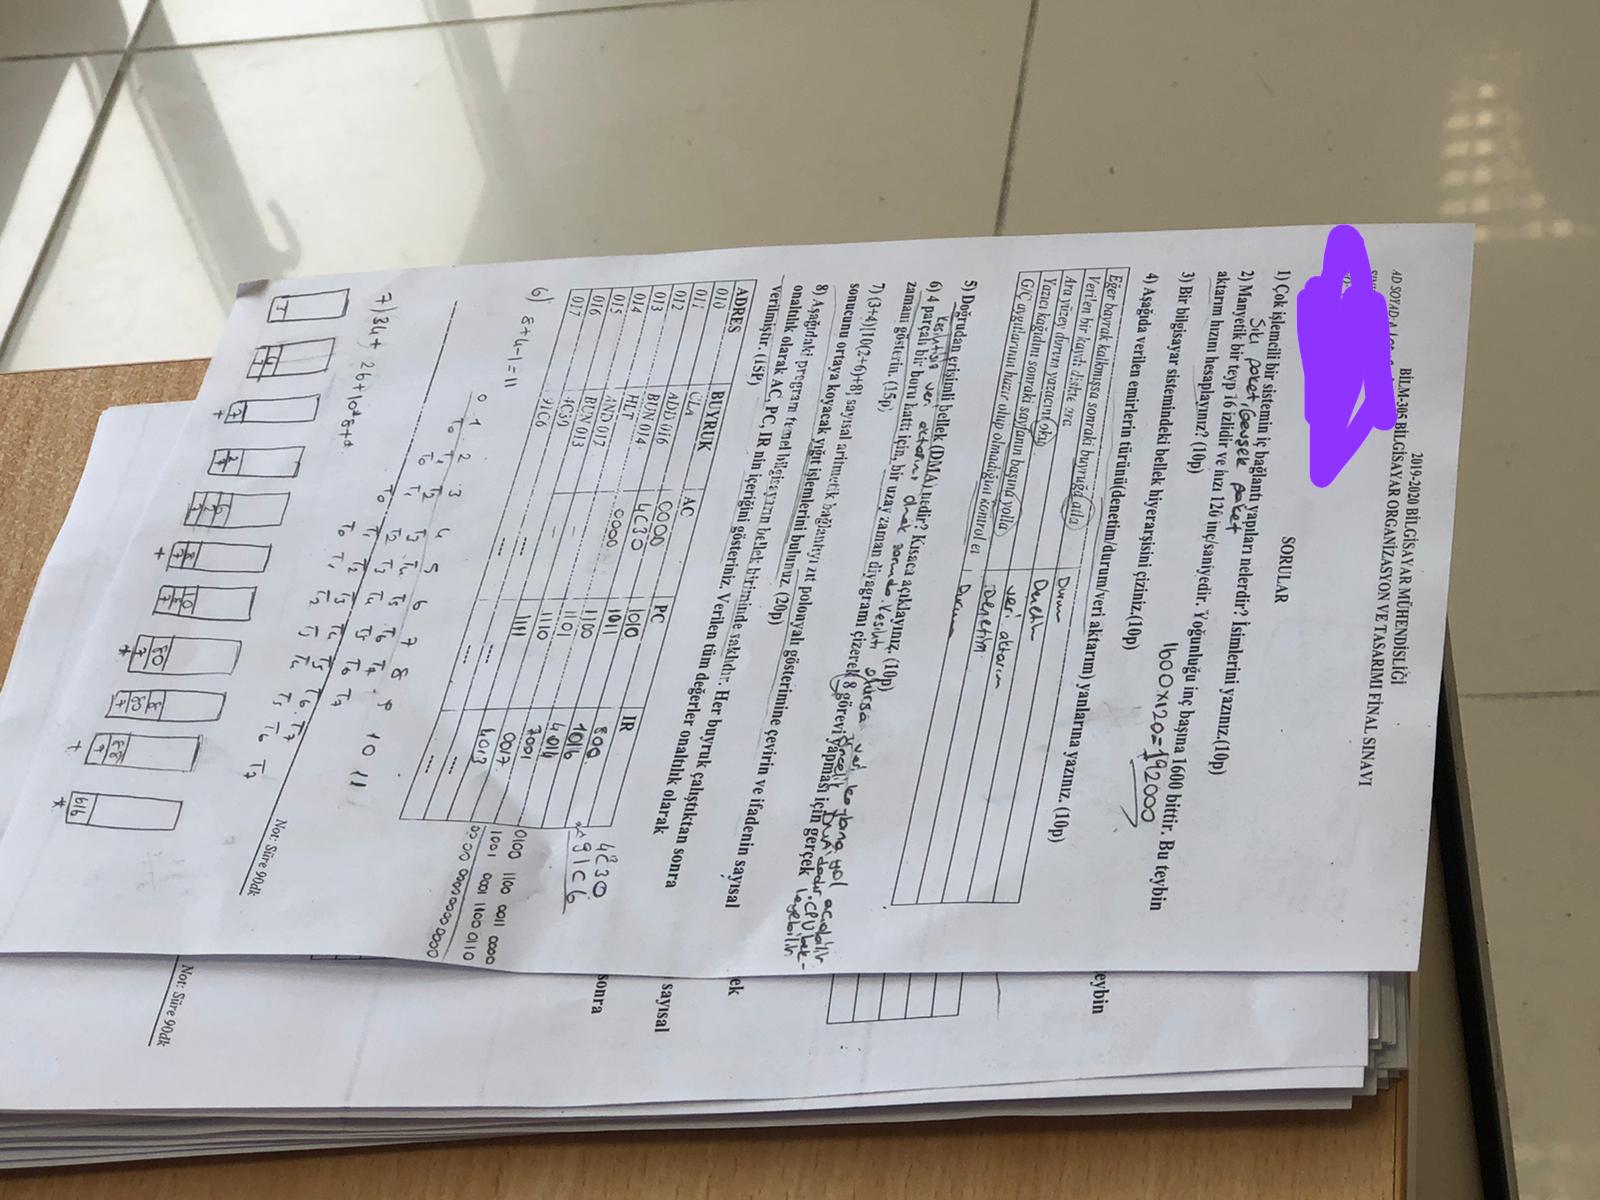 2019-2020 BİLGİSAYAR MÜHENDİSLİĞİ
BİLM-305 BİLGİSAYAR ORGANİZASYON VE TASARIMI FİNAL SINAVI
AD SOYAD:
SORULAR
1) Çok işlemcili bir sistemin iç bağlantı yapıları nelerdir? İsimlerini yazınız.(10p)
Sıkı paket, Gevşek paket
2) Manyetik bir teyp 16 izlidir ve hızı 120 inç/saniyedir. Yoğunluğu inç başına 1600 bittir. Bu teybin
aktarım hızını hesaplayınız? (10p)
1600x120=192000
3) Bir bilgisayar sistemindeki bellek hiyerarşisini çiziniz.(10p)
4) Aşağıda verilen emirlerin türünü(denetim/durum/veri aktarım) yanlarına yazınız. (10p)
Eğer bayrak kalkmışsa sonraki buyruğa atla Durum
Verilen bir kaydı diskte ara Denetim
Ara yüzey durum yazacını oku veri aktarım
Yazıcı kağıdını sonraki sayfanın başına yolla Denetim
G/Ç aygıtlarının hazır olup olmadığını kontrol et Durum
5) Doğrudan erişimli bellek (DMA) nedir? Kısaca açıklayınız. (10p)
Kesintisiz veri aktarımı olmak zorunda. Kesinti olursa veri kaybına yol açabilir
öncelik DMA'dadır. CPU bek-
leyebilir
6) 4 parçalı bir boru hattı için, bir uzay zaman diyagramı çizerek 8 görevi yapması için gerçek
zamanı gösterin. (15p)
7) (3+4)[10(2+6)+8] sayısal aritmetik bağlantıyı zıt polonyalı gösterimine çevirin ve ifadenin sayısal
sonucunu ortaya koyacak yığıt işlemlerini bulunuz. (20p)
8) Aşağıdaki program temel bilgisayarın bellek biriminde saklıdır. Her buyruk çalıştıktan sonra
onaltılık olarak AC, PC, IR nin içeriğini gösteriniz. Verilen tüm değerler onaltılık olarak
verilmiştir. (15P)
ADRES BUYRUK AC PC IR
010 CLA 0000 1010 800
011 ADD 016 4C30 1011 1016
012 BUN 014 0000 1100 4014
013 HLT 1101 7001
014 AND 017 — 1110 0017
015 BUN 013 — 1111 4013
016 4C30 ---- ---- ----
017 91C6 ---- ---- ----
4C30
91C6
0100 1100 0011 0000
1001 0001 1100 0110
0000 0000 0000 0000
6) 8+4-1=11
0 1 2 3 4 5 6 7 8 9 10 11
T0 T1 T2 T3 T4 T5 T6 T7
T0 T1 T2 T3 T4 T5 T6 T7
T0 T1 T2 T3 T4 T5 T6 T7
T0 T1 T2 T3 T4 T5 T6 T7
Not: Süre 90dk
7) 34+ 26+10*8+*
3
4
3
7
+
2
7
6
2
7
8
7
+
10
8
7
80
7
*
8
80
7
88
7
+
616
*
eybin
ek
sayısal
sonra
Not: Süre 90dk